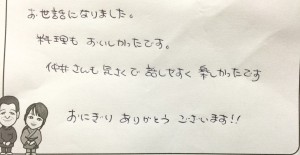 お世話になりました。
料理も おいしかったです。
仲井さんも 気さくで 話しやすく 楽しかったです
おにぎり ありがとう ございます!!